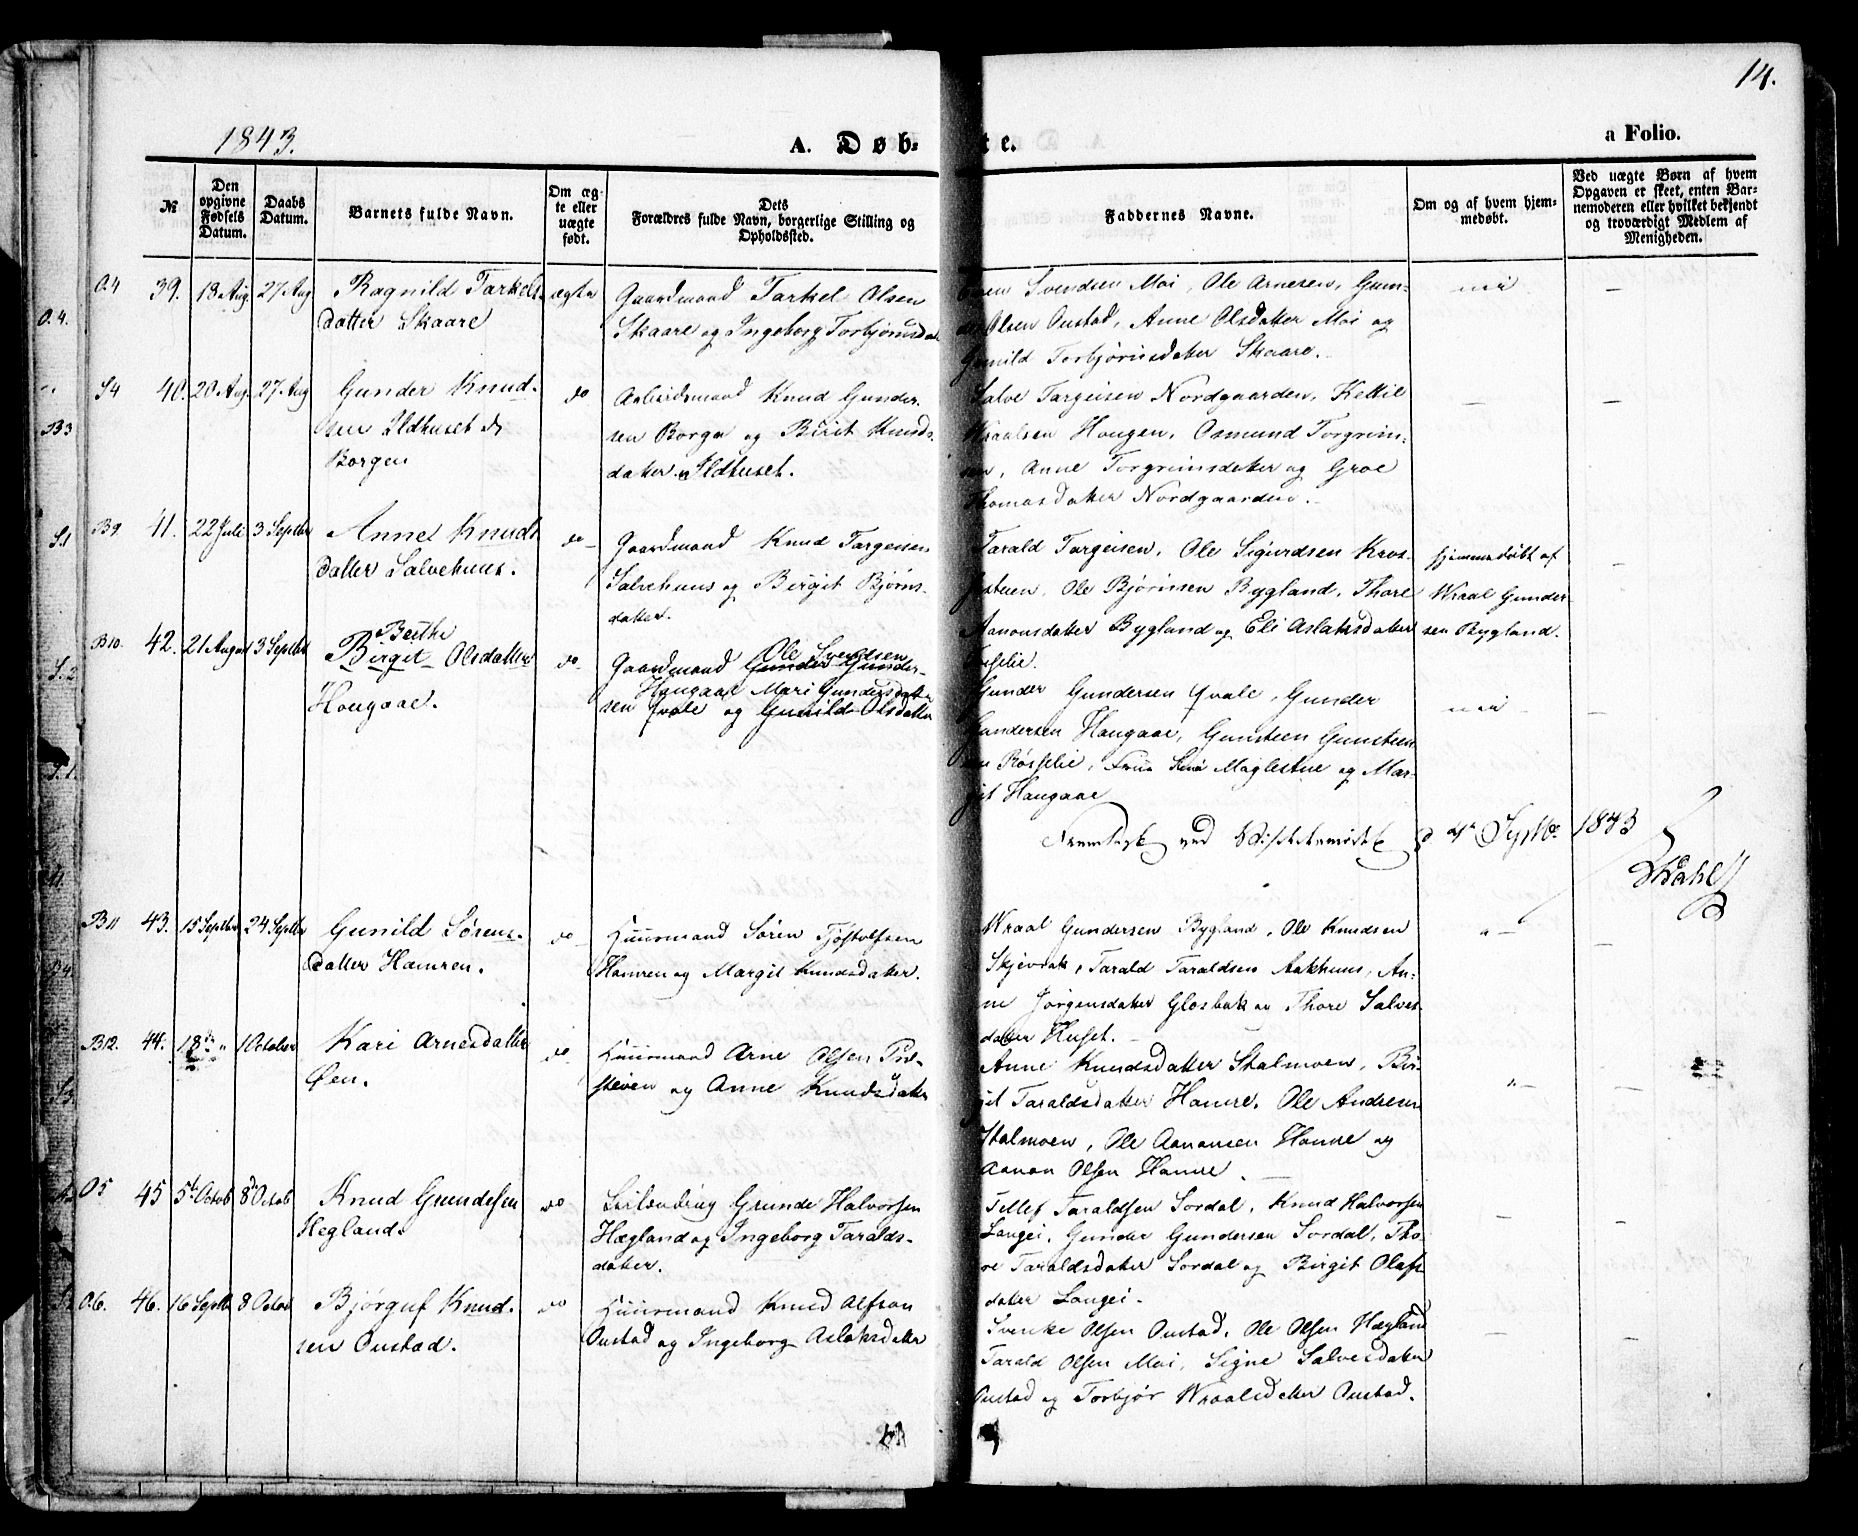 14.
1843.
A. Døb-te.
a Folio.
№
Den opgivne Fødsels Datum.
Daabs Datum.
Barnets fulde Navn.
Om ægte eller uægte født.
Dets Forældres fulde Navn, borgerlige Stilling og Opholdssted.
Faddernes Navne.
Om og af hvem hjemmedøbt.
Ved uægte Børn af hvem Opgaven er skeet, enten Barnemoderen eller hvilket bekjendt og troværdigt Medlem af Menigheden.
O.4 39. 18 Aug. 27 Aug Ragnild Tarkels- ægte Gaardmand Tarkel Olsen
datter Skaare Skaare og Ingeborg Torbjørnsdat
Svendsen Moi, Ole Arnesen, Gun-
Olsen Oustad, Anne Olsdatter Moi og
Gunild Torbjørnsdatter Skaare.
nei —
S4 40. 20 Aug. 27 Aug Gunder Knud- do Arbeidsmand Knud Gunder-
sen Ildhuset
Borgen
sen Borge og Birit Knuds-
datter Ildhuset.
Salve Targeisen Nordgaarden, Kettil
Wraalsen Hougen, Osmund Torgrim-
sen, Anne Torgrimsdatter og Groe
Thomasdatter Nordgaarden.
— —
B9 41. 22 Juli 3 Septbr Anne Knuds do Gaardmand Knud Targeisen
datter Salvehuus. Salvehuus og Birgit Bjørns-
datter.
Tarald Targeisen, Ole Sigurdsen Kros-
Ole Bjørnsen Bygland, Thore
Aanonsdatter Bygland og Eli Aslaksdatter
hjemmedøbt af
Wraal Gunder
sen Bygland.
B10. 42. 21 August 3 Septbr Berthe
Birget Olsdatter do Gaardmand Ole Svendsen
Gunder Gunder-
Hougaae. Hougaae Mari Gundersdatter
sen Qvale og Gunild Olsdatter
Gunder Gundersen Qvale, Gunder
Gundersen Haugaae, Gunsteen Gunsteen
Røsselie, Frue Maglestue og Mar-
git Haugaae
nei —
Fremlagt ved d 4de Septbr. 1843
B11 43. 15 Septbr 24 Septbr Gunild Sørens- do Huusmand Søren Tjøstolfsen
datter Hamren. Hamren og Margit Knudsdatter.
Wraal Gundersen Bygland, Ole Knudsen
Skjevrak, Tarald Taraldsen Aakhuus, An-
ne Jørgensdatter Glosbak og Thore Salves-
datter Huset.
B12. 44. 18de " 1 October Kari Arnesdatter do Huusmand Arne Olsen
Øen. og Anne Knudsdatter
Anne Knudsdatter Stalmoen, Bir-
git Taraldsdatter Hamre, Ole Andresen
Stalmoen, Ole Aanonsen Hamre og
Aanon Olsen Hamre.
O5 45 5te Octob 8de Octob Knud Grundesen do Leilænding Grunde Halvorsen
Hegland. Hægland og Ingeborg Taralds-
datter.
Tellef Taraldsen Sordal, Knud Halvorsen
Langei, Gunder Gundersen Sordal, Tho-
re Taraldsdatter Sordal og Birgit Olafs
datter Langei.
O.6. 46. 16 Septbr 8 Octob Bjørguf Knud- do Huusmand Knud Alfson
sen Oustad. Oustad og Ingeborg Aslaksdatter
Svenke Olsen Oustad, Ole Olsen Hægland
Tarald Olsen Moi, Signe Salvesdatter
Oustad og Torbjør Wraalsdatter Oustad.